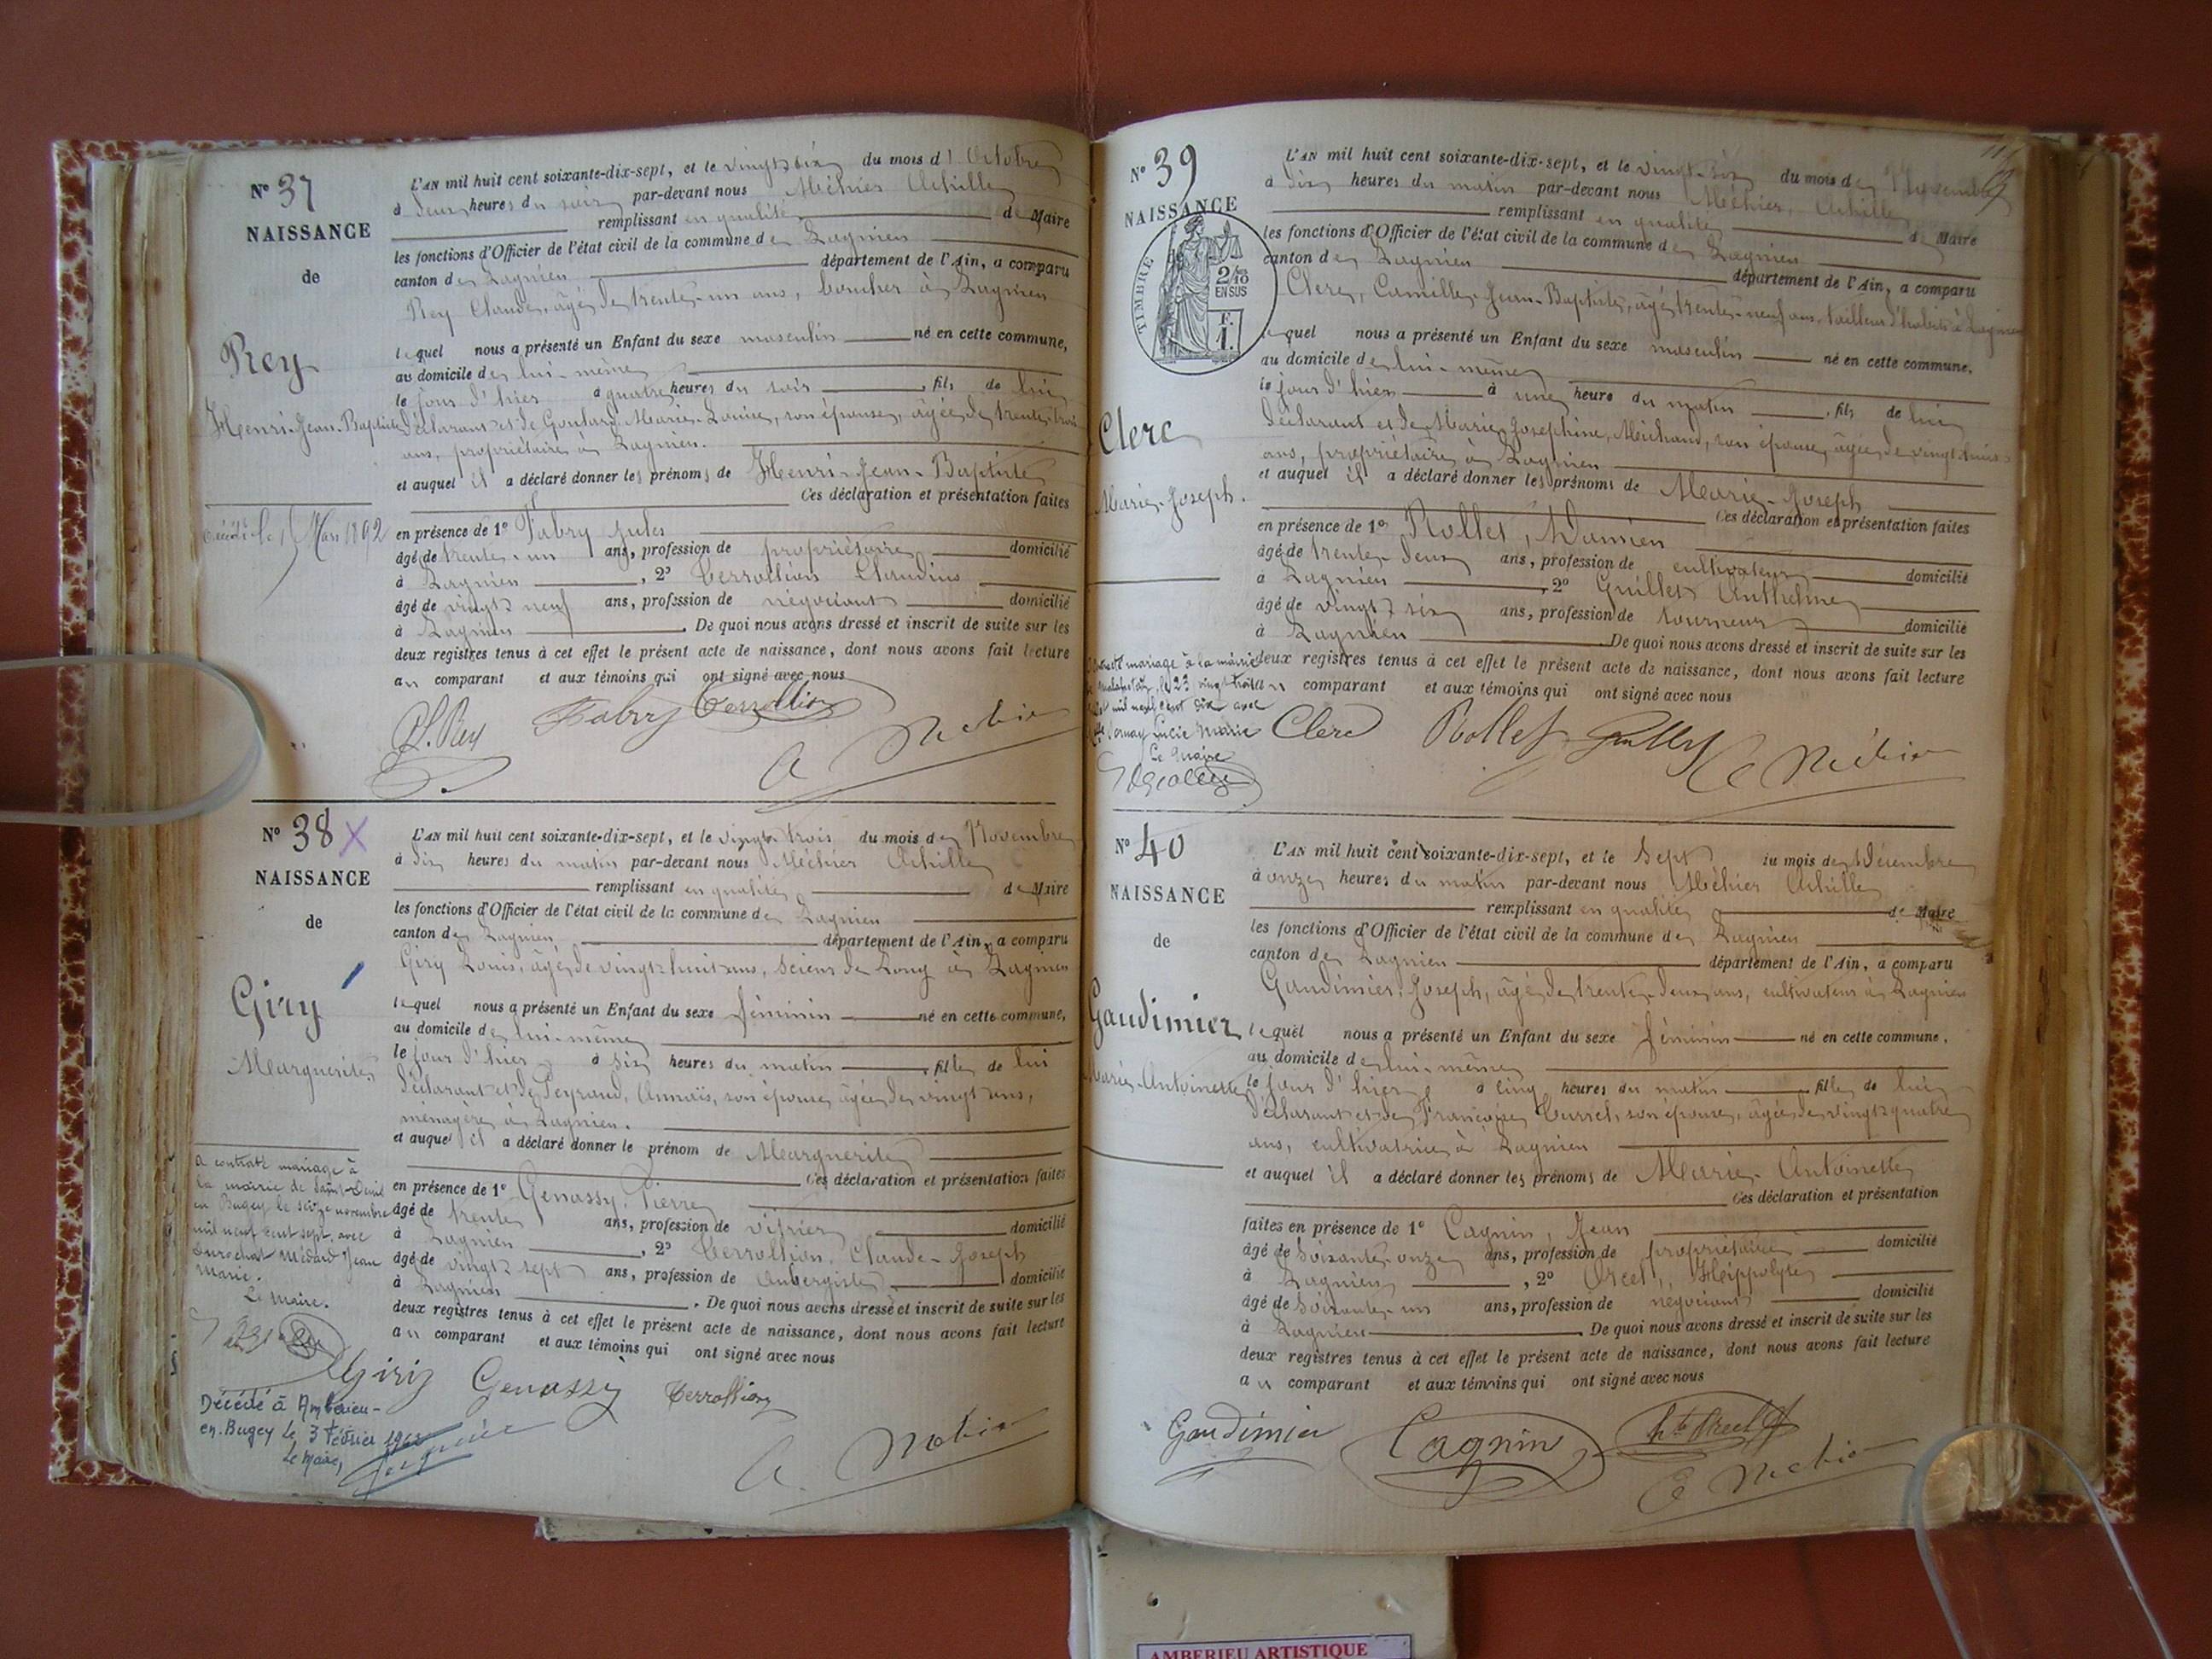 N° 37
NAISSANCE
de
Rey
Henri-Jean-Baptiste
Décédé le 15 Mars 1892
L'AN mil huit cent soixante-dix-sept, et le vingt-six du mois d'Octobre
à deux heures du soir par-devant nous Méhier Achille
remplissant en qualité de Maire
les fonctions d'Officier de l'état civil de la commune de Lagnieu
canton de Lagnieu département de l'Ain, a comparu
Rey Claude, âgé de trente-un ans, boucher à Lagnieu
lequel nous a présenté un Enfant du sexe masculin né en cette commune,
au domicile de lui-même
le jour d'hier à quatre heures du soir, fils de lui
déclarant et de Goulard Marie-Louise, son épouse, âgée de trente-trois
ans, propriétaire à Lagnieu.
et auquel il a déclaré donner les prénoms de Henri-Jean-Baptiste
Ces déclaration et présentation faites
en présence de 1° Fabry Jules
âgé de trente-un ans, profession de propriétaire domicilié
à Lagnieu, 2° Terrollion Claudius
âgé de vingt-neuf ans, profession de négociant domicilié
à Lagnieu. De quoi nous avons dressé et inscrit de suite sur les
deux registres tenus à cet effet le présent acte de naissance, dont nous avons fait lecture
au comparant et aux témoins qui ont signé avec nous
Cl. Rey Fabry Terrollion
A Méhier
N° 38 X
NAISSANCE
de
Giry
Marguerite
a contracté mariage à
la mairie de Saint-Denis
en Bugey le seize novembre
mil neuf cent sept, avec
Durochat Médard Jean
Marie.
Le Maire.
Décédé à Ambérieu-
en-Bugey le 3 février
Le Maire,
L'AN mil huit cent soixante-dix-sept, et le vingt-trois du mois de Novembre
à dix heures du matin par-devant nous Méhier Achille
remplissant en qualité de Maire
les fonctions d'Officier de l'état civil de la commune de Lagnieu
canton de Lagnieu département de l'Ain, a comparu
Giry Louis, âgé de vingt-huit ans, scieur de long à Lagnieu
lequel nous a présenté un Enfant du sexe féminin né en cette commune,
au domicile de lui-même
le jour d'hier à six heures du matin, fille de lui
déclarant et de Peyraud, Annaïs, son épouse, âgée de vingt ans,
ménagère à Lagnieu.
et auquel il a déclaré donner le prénom de Marguerite
Ces déclaration et présentation faites
en présence de 1° Genassy, Pierre
âgé de trente ans, profession de vitrier domicilié
à Lagnieu, 2° Terrollion, Claude-Joseph
âgé de vingt-sept ans, profession de Aubergiste domicilié
à Lagnieu. De quoi nous avons dressé et inscrit de suite sur les
deux registres tenus à cet effet le présent acte de naissance, dont nous avons fait lecture
au comparant et aux témoins qui ont signé avec nous
Giriy Genassy Terrollion
A Méhier
N° 39
NAISSANCE
TIMBRE
2/10
EN SUS
F.
1.
Clerc
Marie-Joseph.
mariage à la mairie
le 23 vingt trois
mil neuf cent dix avec
Vernay Lucie Marie
Le Maire
L'AN mil huit cent soixante-dix-sept, et le vingt-six du mois de Novembre
à dix heures du matin par-devant nous Méhier, Achille
remplissant en qualité de Maire
les fonctions d'Officier de l'état civil de la commune de Lagnieu
canton de Lagnieu département de l'Ain, a comparu
Clerc, Camille-Jean-Baptiste, âgé trente-neuf ans, tailleur d'habits à Lagnieu
lequel nous a présenté un Enfant du sexe masculin né en cette commune,
au domicile de lui-même
le jour d'hier à une heure du matin, fils de lui
déclarant et de Marie-Josephine, Michaud, son épouse, âgée de vingt-huit
ans, propriétaire à Lagnieu
et auquel il a déclaré donner les prénoms de Marie-Joseph
Ces déclaration et présentation faites
en présence de 1° Rollet, Damien
âgé de trente-deux ans, profession de cultivateur domicilié
à Lagnieu, 2° Guillet Anthelme
âgé de vingt-six ans, profession de tourneur domicilié
à Lagnieu De quoi nous avons dressé et inscrit de suite sur les
deux registres tenus à cet effet le présent acte de naissance, dont nous avons fait lecture
au comparant et aux témoins qui ont signé avec nous
Clerc Rollet Guillet Méhier
N° 40
NAISSANCE
de
Gaudimier
Marie-Antoinette
L'AN mil huit cent soixante-dix-sept, et le Sept du mois de Décembre
à onze heures du matin par-devant nous Méhier Achille
remplissant en qualité de Maire
les fonctions d'Officier de l'état civil de la commune de Lagnieu
canton de Lagnieu département de l'Ain, a comparu
Gaudimier, Joseph, âgé de trente-deux ans, cultivateur à Lagnieu
lequel nous a présenté un Enfant du sexe féminin né en cette commune,
au domicile de lui-même
le jour d'hier à cinq heures du matin, fille de lui
déclarant et de Françoise Curret, son épouse, âgée de vingt-quatre
ans, cultivatrice à Lagnieu
et auquel il a déclaré donner les prénoms de Marie-Antoinette
Ces déclaration et présentation
faites en présence de 1° Cagnin, Jean
âgé de soixante-onze ans, profession de propriétaire domicilié
à Lagnieu, 2° Orcel, Hippolyte
âgé de soixante-un ans, profession de négociant domicilié
à Lagnieu. De quoi nous avons dressé et inscrit de suite sur les
deux registres tenus à cet effet le présent acte de naissance, dont nous avons fait lecture
au comparant et aux témoins qui ont signé avec nous
Gaudimier Cagnin hte Orcel
Méhier
AMBERIEU ARTISTIQUE